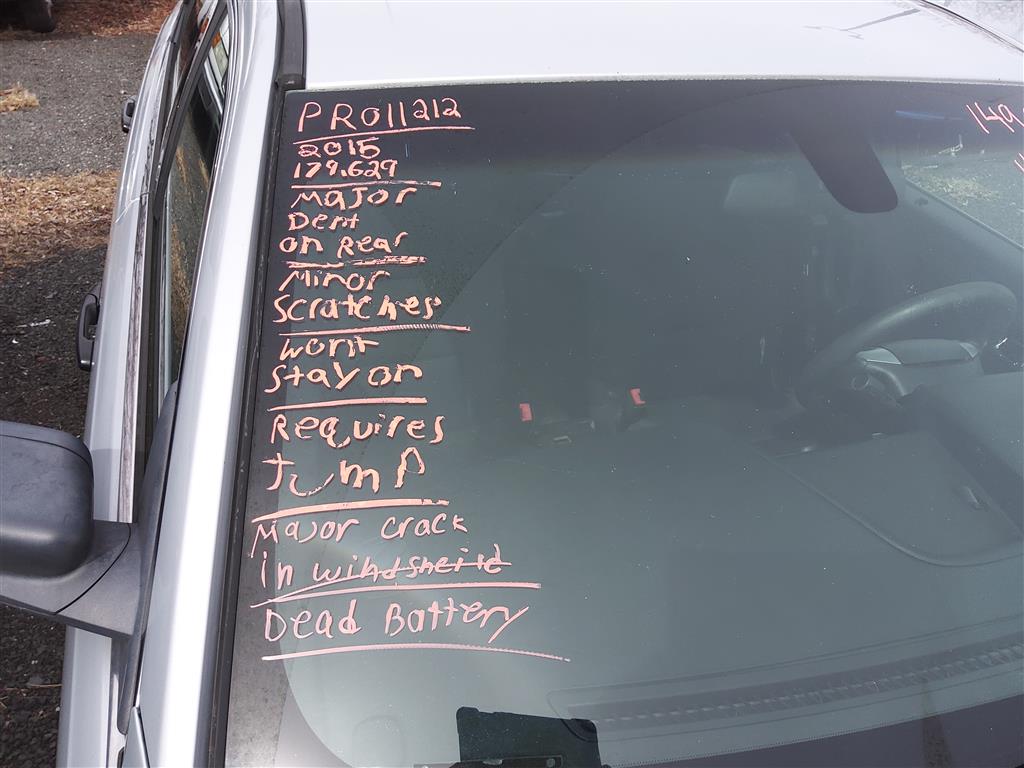 PR011212
2015
179,629
Major
Dent
on Rear
Minor
Scratches
wont
stay on
Requires
Jump
Major crack
in windsheild
Dead Battery
149